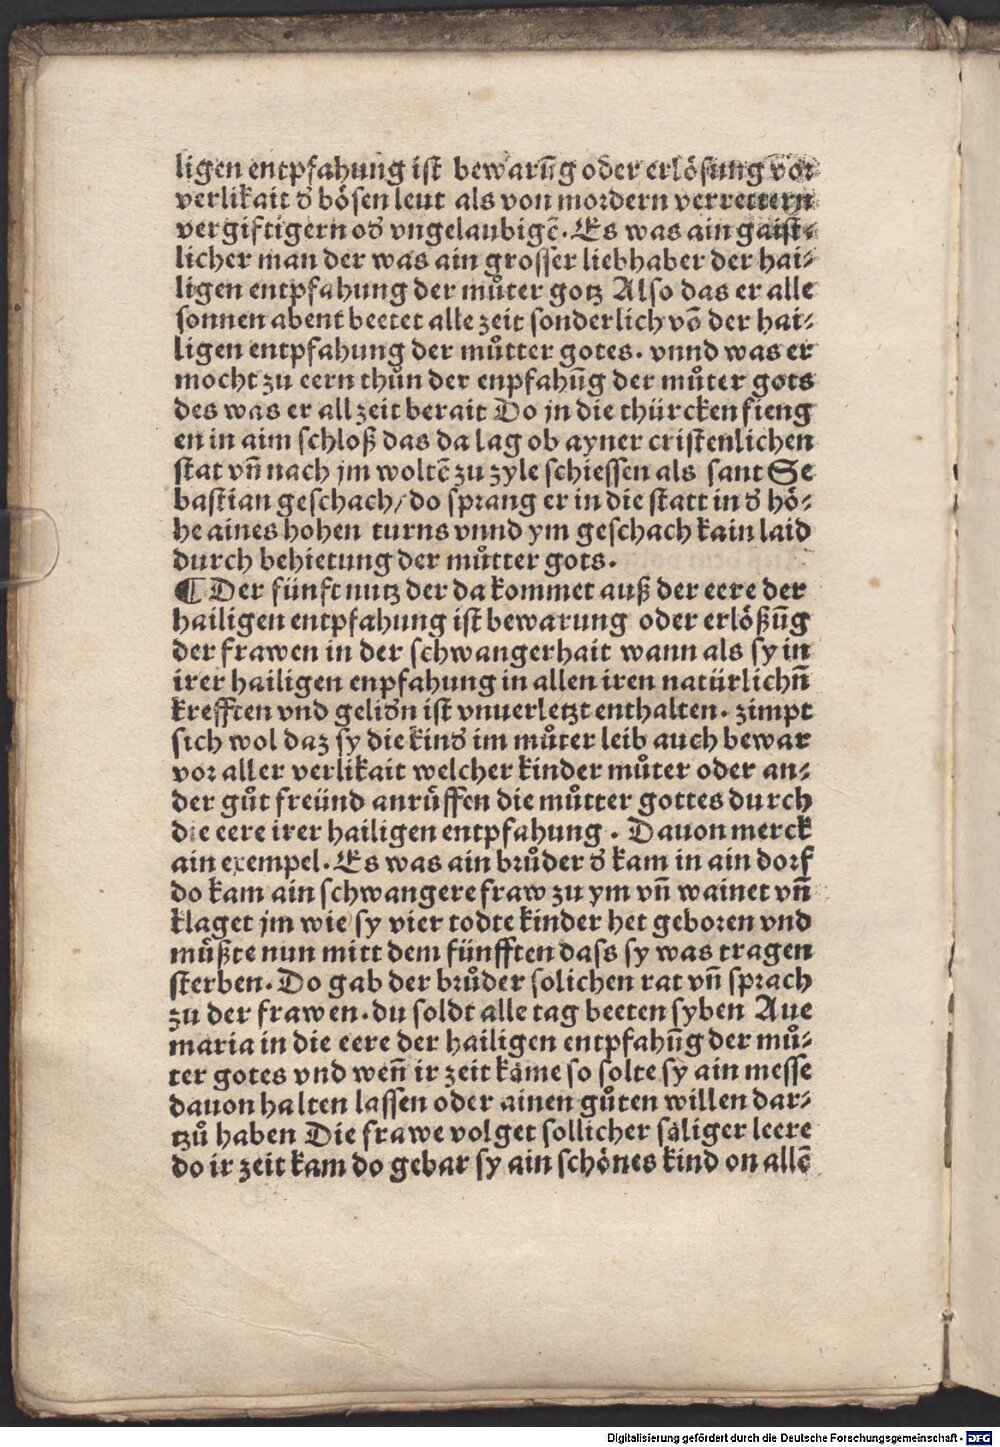 ligen entpfahung ist bewarūg oder erlösung vor
verlikait ď bösen leut als von mordern verrettern
vergiftigern oď vngelaubigē. Es was ain gaist⸗
licher man der was ain grosser liebhaber der hai⸗
ligen entpfahung der můter gotz Also das er alle
sonnen abent beetet alle zeit sonderlich vō der hai⸗
ligen entpfahung der můtter gotes. vnnd was er
mocht zu eern thůn der enpfahūg der můter gots
des was er all zeit berait Do jn die thürcken fieng
en in aim schloß das da lag ob ayner cristenlichen
stat vn̄ nach jm woltē zu zyle schiessen als sant Se
bastian geschach/ do sprang er in die statt in ď hö⸗
he aines hohen turns vnnd ym geschach kain laid
durch behietung der můtter gots.
¶ Der fünft nutz der da kommet auß der eere der
hailigen entpfahung ist bewarung oder erlößūg
der frawen in der schwangerhait wann als sy in
irer hailigen enpfahung in allen iren natürlichn̄
krefften vnd geliďn ist vnuerletzt enthalten. zimpt
sich wol daz sy die kinď im můter leib auch bewar
vor aller verlikait welcher kinder můter oder an⸗
der gůt freünd anrůffen die můtter gottes durch
die eere irer hailigen entpfahung. Dauon merck
ain exempel. Es was ain brůder ď kam in ain dorf
do kam ain schwangere fraw zu ym vn̄ wainet vn̄
klaget jm wie sy vier todte kinder het geboren vnd
můßte nun mitt dem fünfften dass sy was tragen
sterben. Do gab der brůder solichen rat vn̄ sprach
zu der frawen. du soldt alle tag beeten syben Aue
maria in die eere der hailigen entpfahūg der mů⸗
ter gotes vnd wen̄ ir zeit käme so solte sy ain messe
dauon halten lassen oder ainen gůten willen dar⸗
tzů haben Die frawe volget sollicher säliger leere
do ir zeit kam do gebar sy ain schönes kind on allē
Digitalisierung gefördert durch die Deutsche Forschungsgemeinschaft - DFG